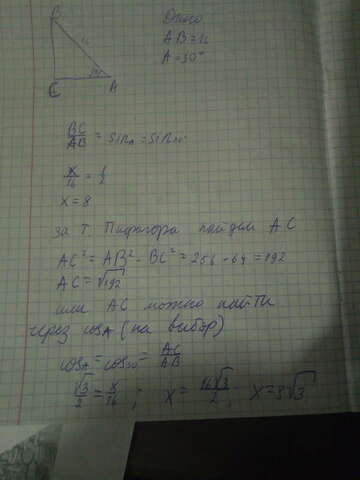 B
Дано
AB=16
A=30°
16
30°
C
A
BC/AB = sin A = sin 30°
x/16 = 1/2
x = 8
за Т Пифагора найдем AC
AC² = AB² - BC² = 256 - 64 = 192
AC = √192
или AC можно найти
через cos A (на вибор)
cos A = cos 30° = AC/AB
√3/2 = x/16 ; x = 16√3/2 ; x = 8√3